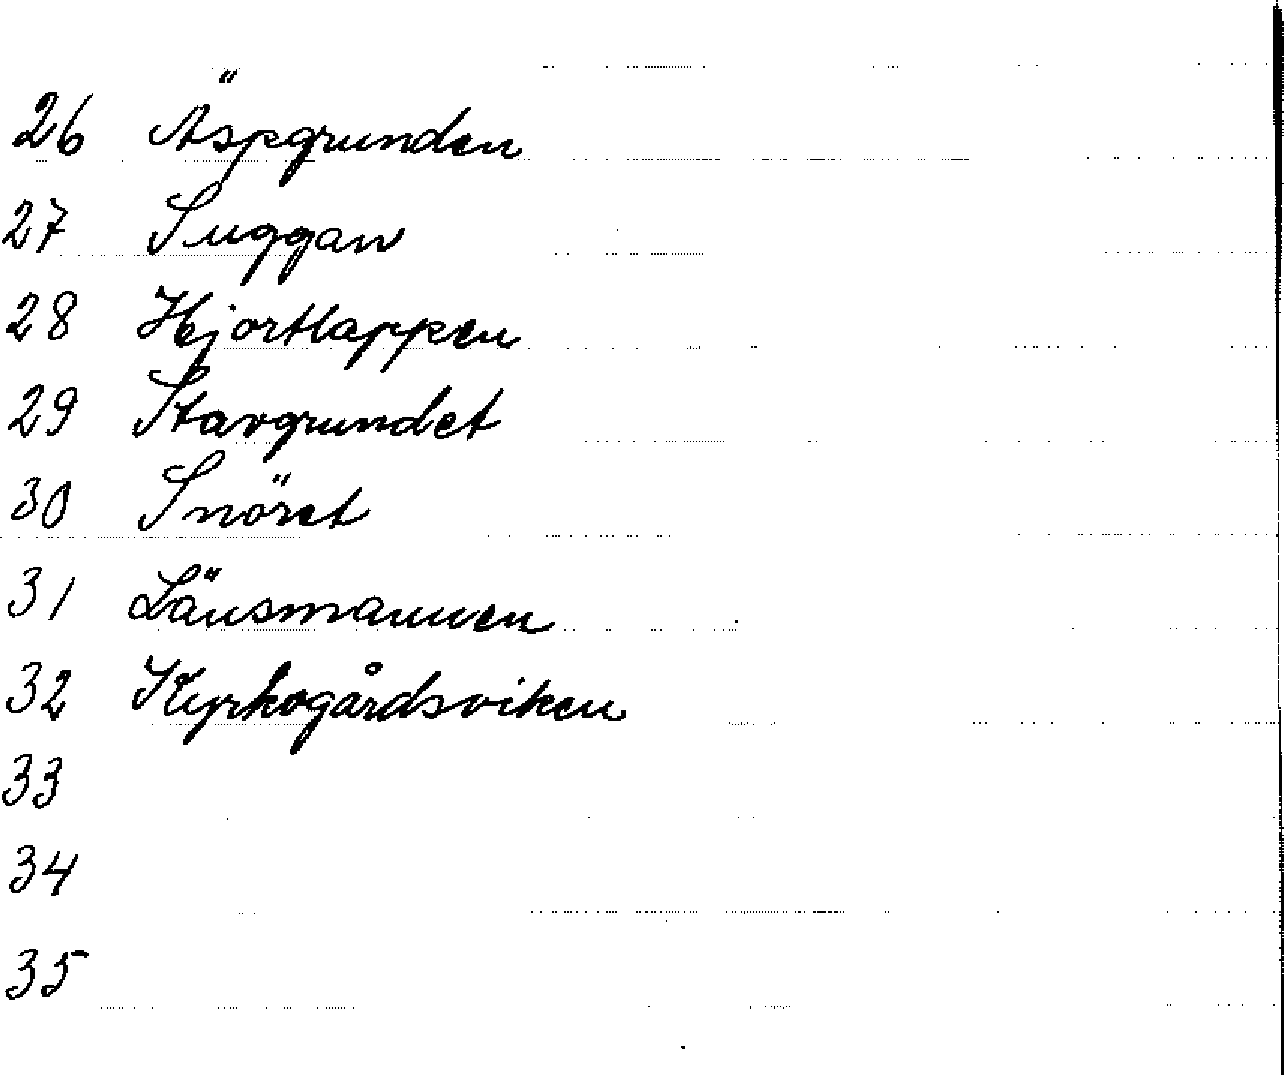 26 Äspgrunden
27 Suggan
28 Hjortlappen
29 Stavgrundet
30 Snöret
31 Länsmannen
32 Kyrkogårdsviken
33
34
35